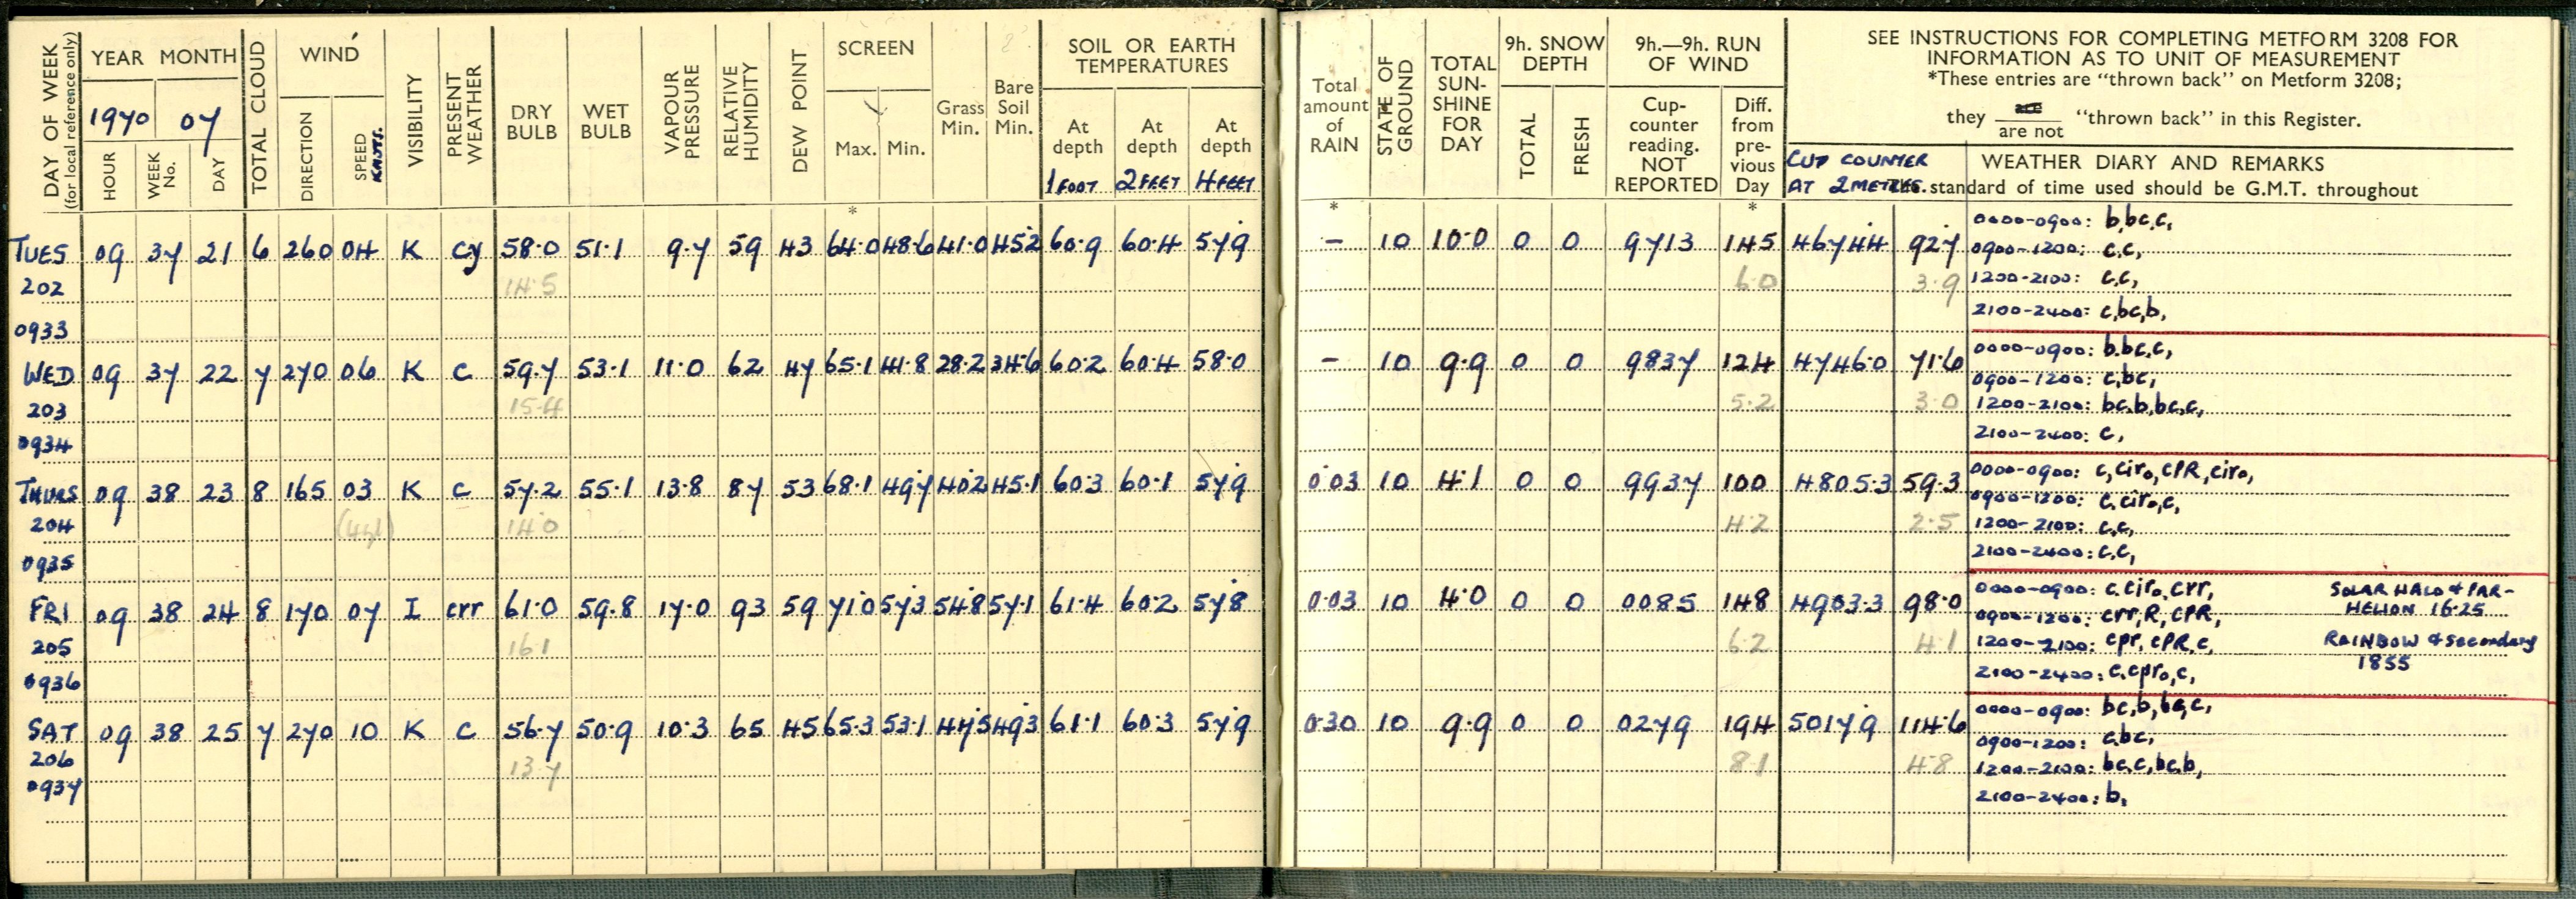 DAY OF WEEK
(for local reference only)
YEAR MONTH
1970 07
HOUR
WEEK No.
DAY
TOTAL CLOUD
WIND
DIRECTION
SPEED KNOTS.
VISIBILITY
PRESENT WEATHER
DRY BULB
WET BULB
VAPOUR PRESSURE
RELATIVE HUMIDITY
DEW POINT
SCREEN
Max. Min.
Grass Min.
Bare Soil Min.
SOIL OR EARTH TEMPERATURES
At depth 1 FOOT
At depth 2 FEET
At depth 4 FEET
Total amount of RAIN
STATE OF GROUND
TOTAL SUN-SHINE FOR DAY
9h. SNOW DEPTH
TOTAL
FRESH
9h.—9h. RUN OF WIND
Cup-counter reading. NOT REPORTED
Diff. from pre-vious Day
SEE INSTRUCTIONS FOR COMPLETING METFORM 3208 FOR
INFORMATION AS TO UNIT OF MEASUREMENT
*These entries are "thrown back" on Metform 3208;
they are / are not "thrown back" in this Register.
CUP COUNTER AT 2 METRES.
WEATHER DIARY AND REMARKS
The standard of time used should be G.M.T. throughout
* * *
TUES 09 37 21 6 260 04 K cy 58.0 51.1 9.7 59 43 64.0 48.6 41.0 45.2 60.9 60.4 57.9 – 10 10.0 0 0 9713 145 4674.4 92.7 0000-0900: b,bc,c,
0900-1200: c,c,
202 14.5 6.0 3.9 1200-2100: c,c,
0933 2100-2400: c,bc,b,
WED 09 37 22 7 270 06 K c 59.7 53.1 11.0 62 47 65.1 41.8 28.2 34.6 60.2 60.4 58.0 – 10 9.9 0 0 9837 124 4746.0 71.6 0000-0900: b,bc,c,
0900-1200: c,bc,
203 15.4 5.2 3.0 1200-2100: bc,b,bc,c,
0934 2100-2400: c,
THURS 09 38 23 8 165 03 K c 57.2 55.1 13.8 87 53 68.1 49.7 40.2 45.1 60.3 60.1 57.9 0.03 10 4.1 0 0 9937 100 4805.3 59.3 0000-0900: c,ciro,cPR,ciro,
0900-1200: c,ciro,c,
204 14.0 4.2 2.5 1200-2100: c,c,
0935 2100-2400: c,c,
FRI 09 38 24 8 170 07 I crr 61.0 59.8 17.0 93 59 71.0 57.3 54.8 57.1 61.4 60.2 57.8 0.03 10 4.0 0 0 0085 148 4903.3 98.0 0000-0900: c,ciro,crr, SOLAR HALO & PAR-
0900-1200: crr,R,cPR, HELION 16.25
205 16.1 6.2 4.1 1200-2100: cpr,cPR,c, RAINBOW & Secondary
0936 2100-2400: c,cpro,c, 1855
SAT 09 38 25 7 270 10 K c 56.7 50.9 10.3 65 45 65.3 53.1 47.5 49.3 61.1 60.3 57.9 0.30 10 9.9 0 0 0279 194 5017.9 114.6 0000-0900: bc,b,bc,c,
0900-1200: c,bc,
206 13.7 8.1 4.8 1200-2100: bc,c,bc,b,
0937 2100-2400: b,